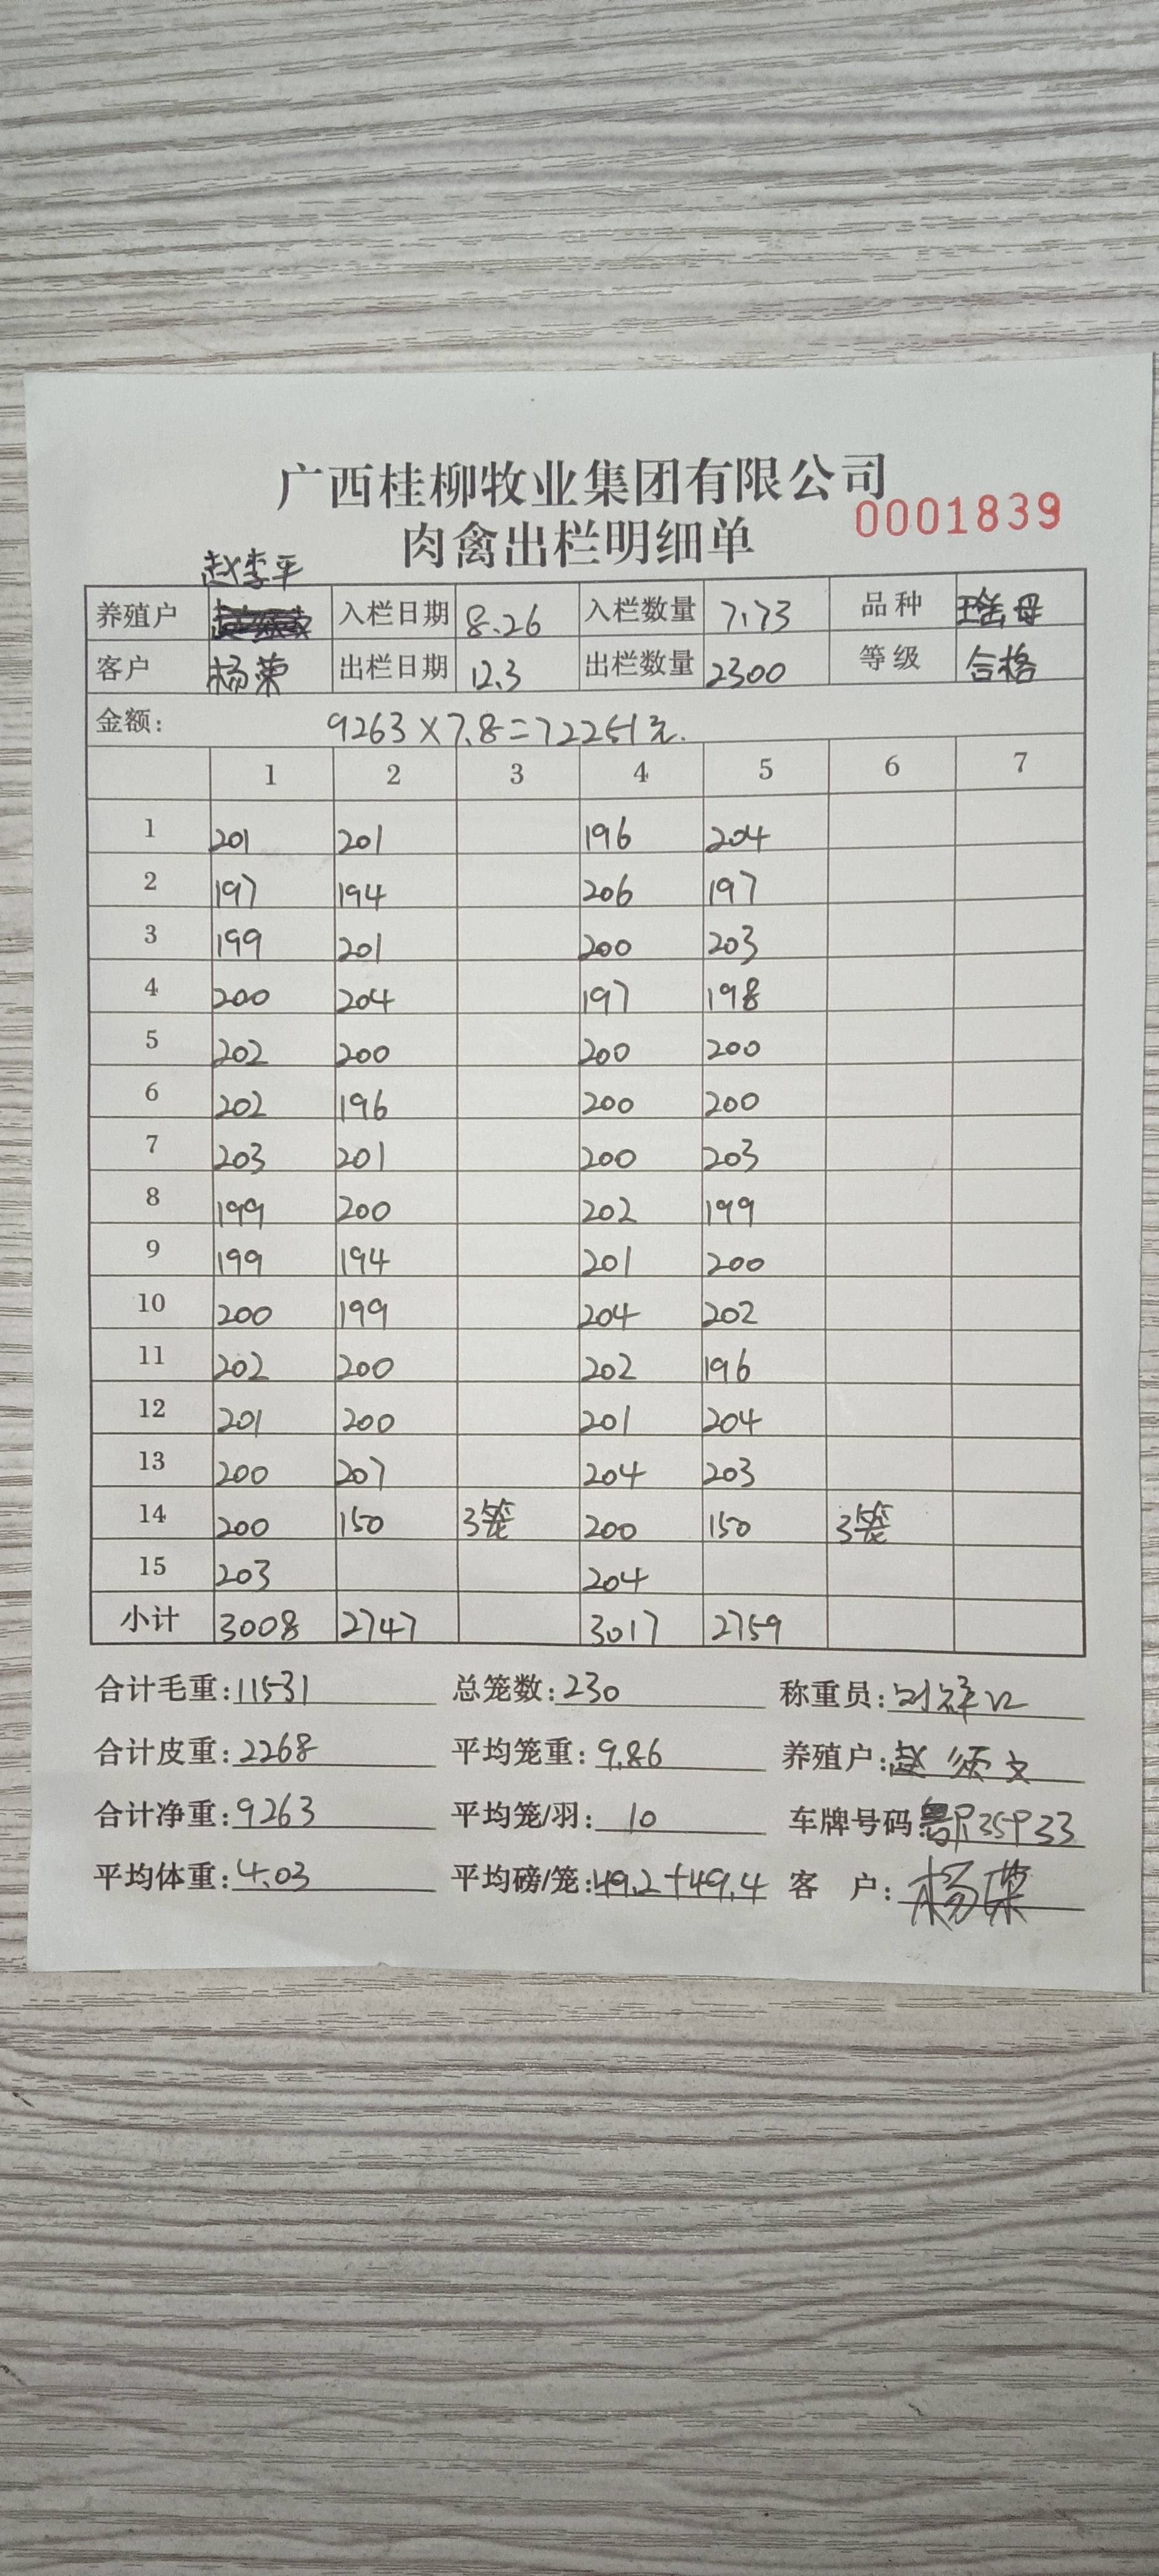 广西桂柳牧业集团有限公司
肉禽出栏明细单 0001839
赵李平
养殖户 入栏日期 8.26 入栏数量 7.73 品种 瑶母
客户 杨荣 出栏日期 12.3 出栏数量 2300 等级 合格
金额: 9263×7.8=72251元.
1 2 3 4 5 6 7
1 201 201 196 204
2 197 194 206 197
3 199 201 200 203
4 200 204 197 198
5 202 200 200 200
6 202 196 200 200
7 203 201 200 203
8 199 200 202 199
9 199 194 201 200
10 200 199 204 202
11 202 200 202 196
12 201 200 201 204
13 200 207 204 203
14 200 150 3笼 200 150 3笼
15 203 204
小计 3008 2747 3017 2759
合计毛重:11531 总笼数:230 称重员:
合计皮重:2268 平均笼重:9.86 养殖户:赵
合计净重:9263 平均笼/羽:10 车牌号码
平均体重:4.03 平均磅/笼:49.2+49.4 客 户:杨荣